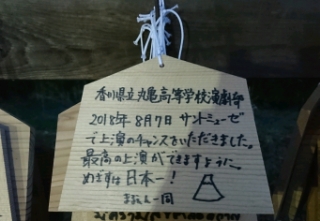 香川県立丸亀高等学校演劇部
2018年8月7日 サントミューゼ
で上演のチャンスをいただきました。
最高の上演ができますように。
めざすは日本一！
一同